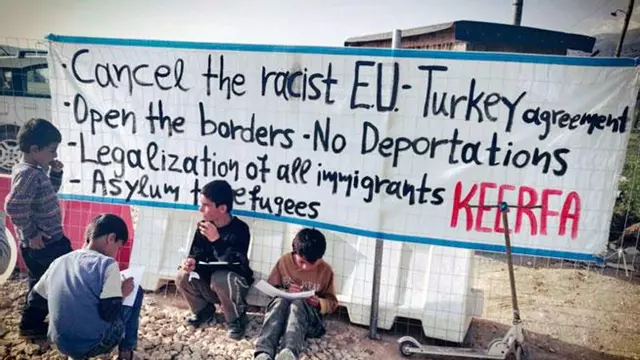 -Cancel the racist E.U.-Turkey agreement
-Open the borders -No Deportations
-Legalization of all immigrants
- Asylum refugees
KEERFA